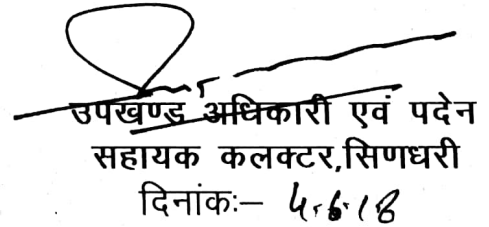 उपखण्ड अधिकारी एवं पदेन
सहायक कलक्टर,सिणधरी
दिनांकः– 4.6.18